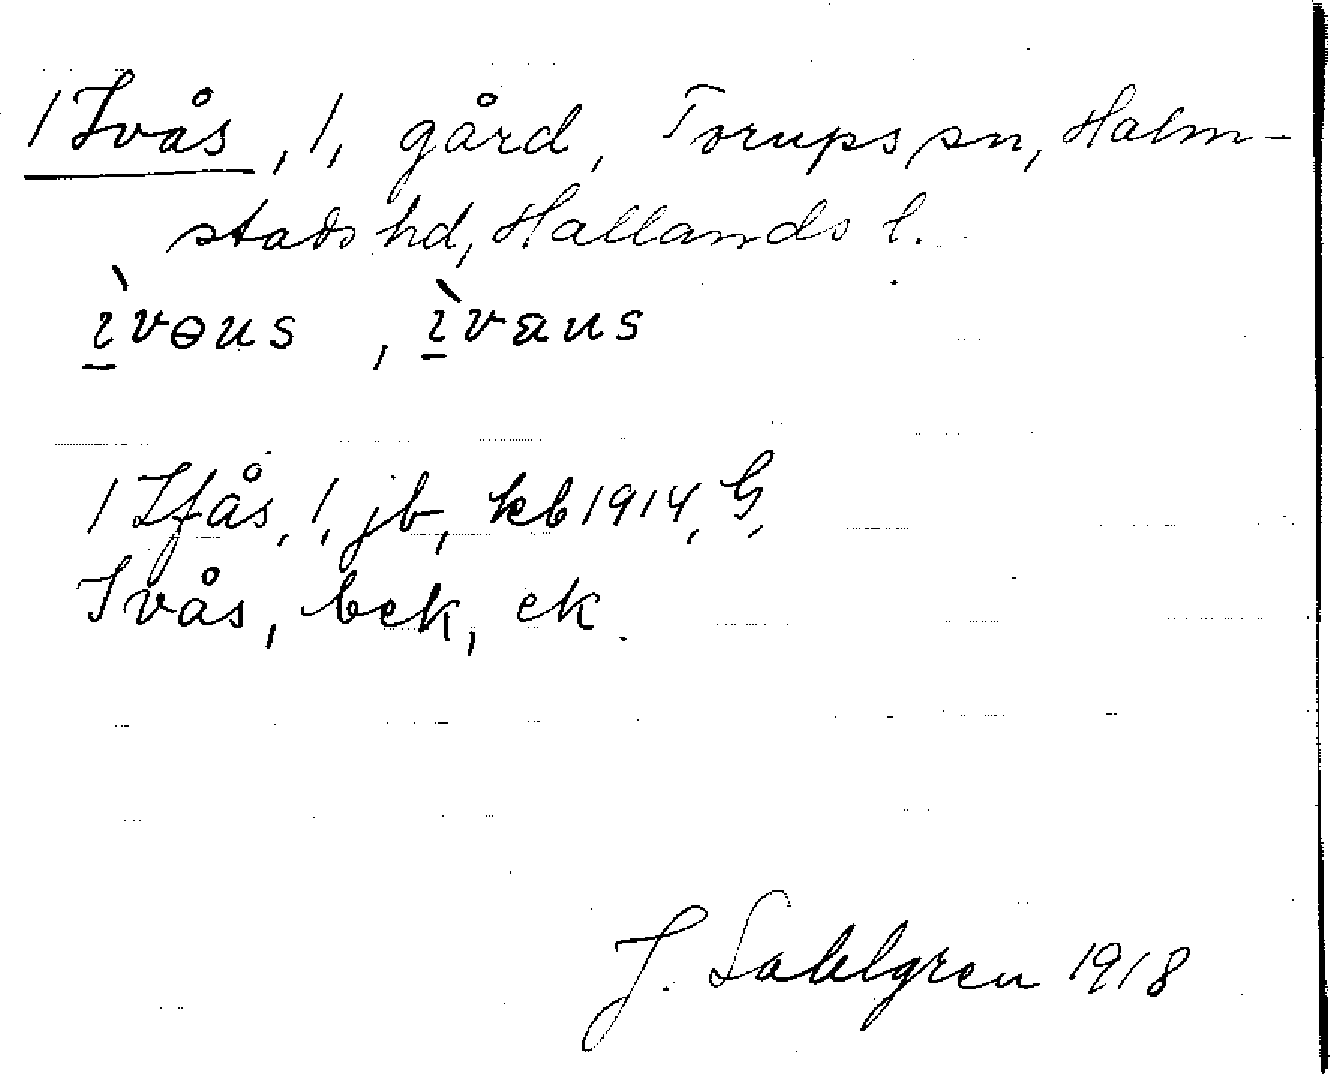 1 Ivås, 1, gård, Torups sn, Halm-
stads hd, Hallands l.
ı̱̀vɵus, ı̱̀vaus
1 Ifås, 1, jb, kb 1914, G,
Ivås, bek, ek.
J. Sahlgren 1918